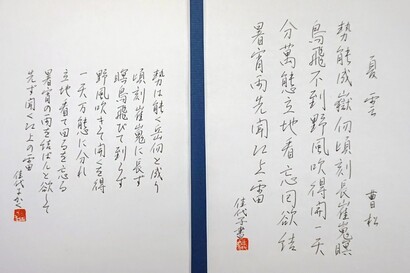 夏雲 曹松
勢能成嶽仞頃刻長崔嵬暝
鳥飛不到野風吹得開一天
分萬態立地看忘回欲結
暑宵雨先聞江上雷
佳代子書
勢は能く岳仞と成り
頃刻崔嵬に長ず
暝鳥飛びて到らず
野風吹きて開くを得
一天万態に分れ
立地看て回るを忘る
暑宵の雨を結ばんと欲して
先ず聞く江上の雷
佳代子かく